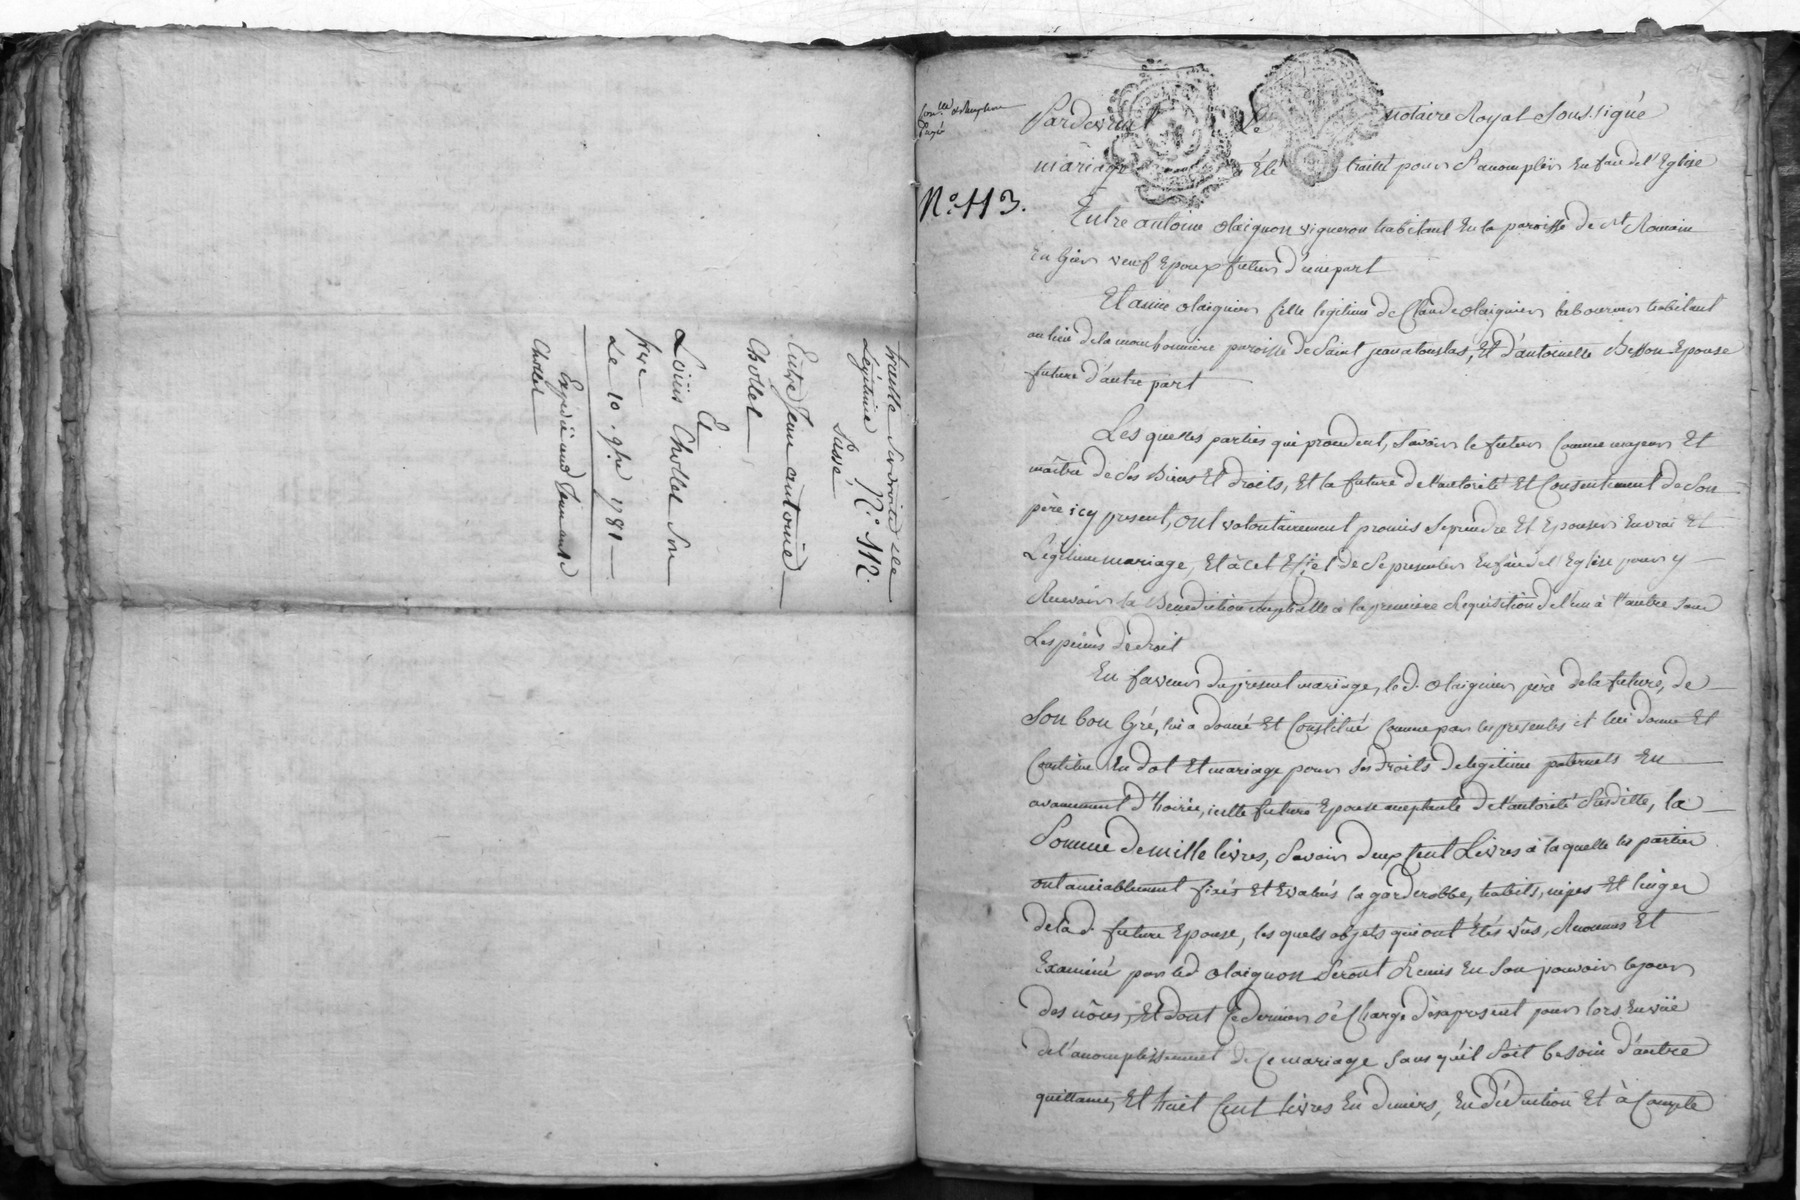 traitté Sur droits de
Légitime
N.° 112.
Entre Jean antoine
Chollet
Et
Loüis Chollet Son
frere
Le 10. 9.bre 1781
Expedié aud. Jean ant.e
Chollet
N.° 113.
Pardevant Le notaire Royal Sous signé
mariage a Eté traitté pour S'accomplir En face de l'Eglise
Entre antoine olaignon vigneron habitant En la paroisse de St Romain
En Gier veuf Epoux futur d'une part
Et anne olaignier fille legitime de Claude olaignier laboureur habitant
au lieu de la paroisse de Saint jean atouslas, Et d'antoinette Besson Epouse
future d'autre part
Les quelles parties qui procedent, Savoir le futur Comme majeur Et
maître de Ses Biens Et droits, Et la future de l'autorité Et Consentement de Son
père icy present, ont volontairement promis Se prendre Et Epouser En vrai Et
Légitime mariage, Et à Cet Effet de Se presenter En face de l'Eglise pour y
Recevoir la Benediction nuptialle à la premiere Requisition de l'un à l'autre sous
Les peines de droit
En faveur du present mariage, led. olaignier père de la future, de
Son bon Gré, lui a donné Et Constitué Comme par les presentes il lui donne Et
Constitue En dot Et mariage pour Ses droits de legitime paternels En
avancement d'hoirie, icelle future Epouse acceptante de l'autorité Susditte, la
Somme de mille livres, Savoir deux Cent Livres à laquelle les parties
ont amiablement fixés Et Evalués la garderobbe, habits, nipes Et linges
de lad. future Epouse, les quels objets qui ont Etés vûs, Reconnus Et
Examiné par led olaignon Seront Remis En Son pouvoir le jour
des nôces, Et dont Ce dernier Sé Charge dèsapresent pour lors En vüe
de l'accomplissement de Ce mariage Sans qu'il Soit besoin d'autre
quittance, Et huit Cent livres En deniers, En déduction Et à Compte